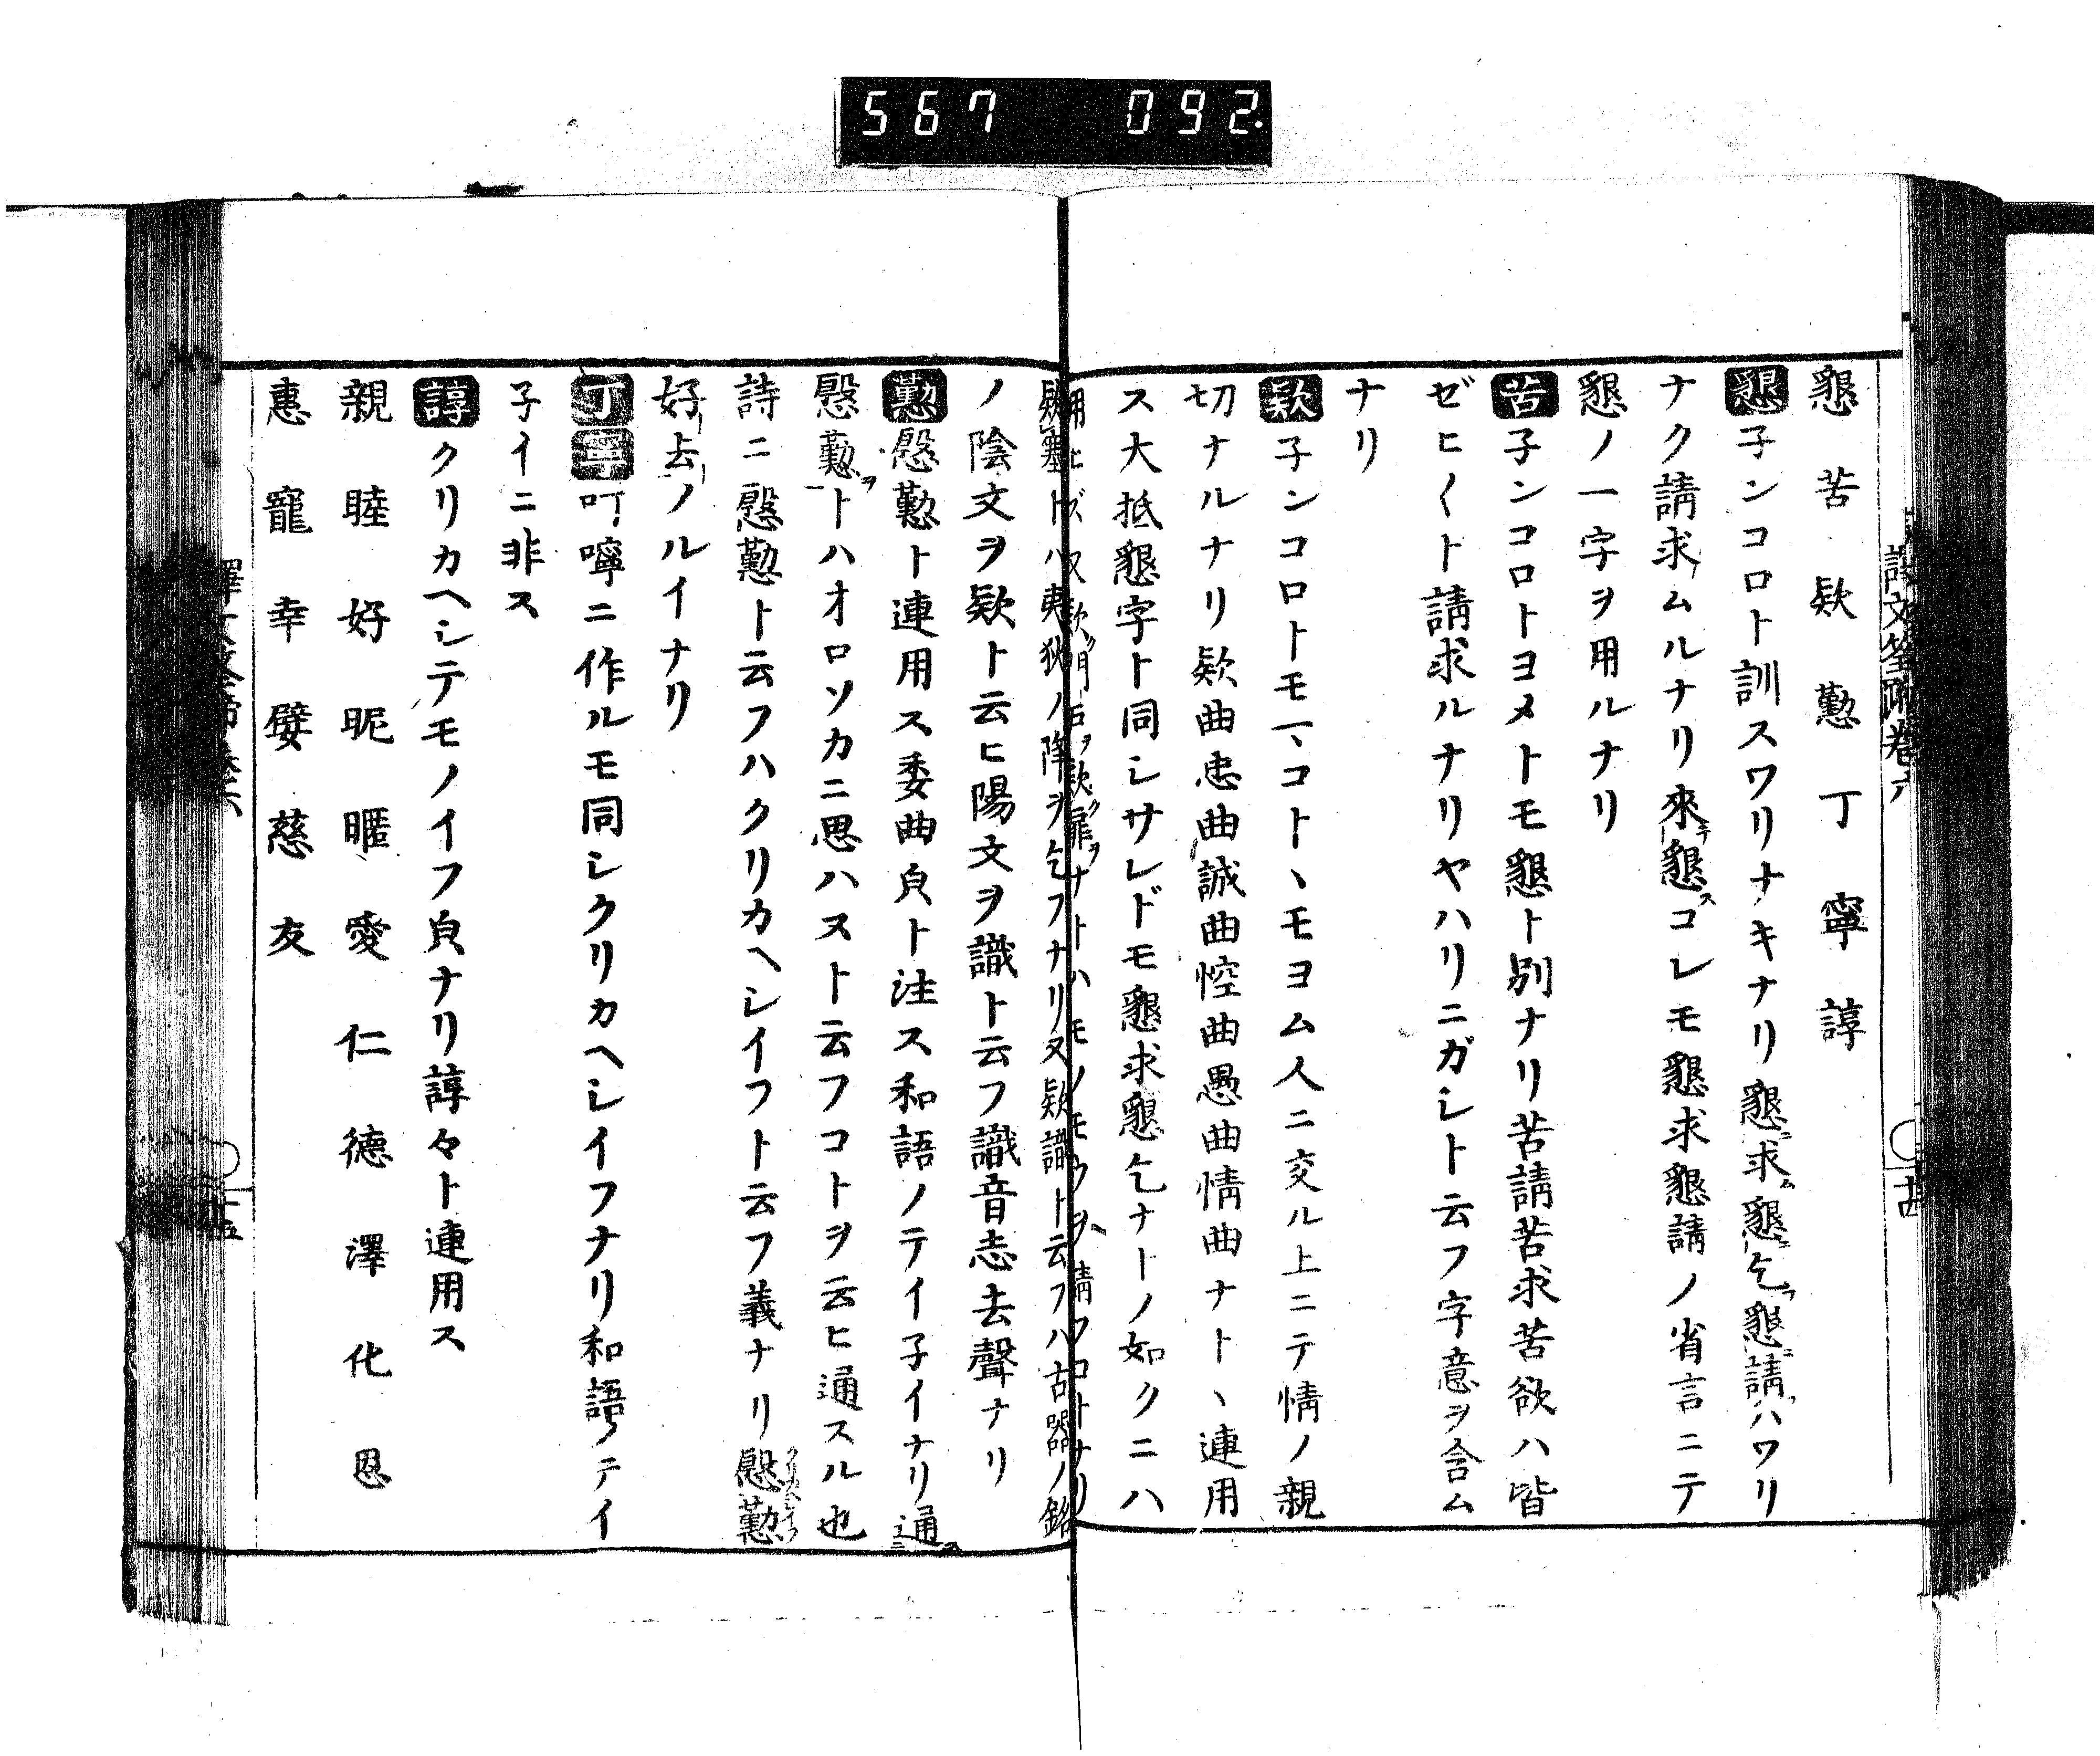 567 092.
懇苦欵懃丁寧諄
懇子ンコロト訓スワリナキナリ懇求懇乞懇請ハワリ
ナク請求ムルナリ來懇コレモ懇求懇請ノ省言ニテ
懇ノ一字ヲ用ルナリ
苦子ンコロトヨメトモ懇ト別ナリ苦請苦求苦欲ハ皆
ゼヒ〱ト請求ルナリヤハリニガシト云フ字意ヲ含ム
ナリ
欵子ンコロトモマコトヽモヨム人ニ交ル上ニテ情ノ親
切ナルナリ欵曲忠曲誠曲悾曲愚曲情曲ナトヽ連用
ス大抵懇字ト同シサレドモ懇求懇乞ナトノ如クニハ
用ヒズ又欵門欵扉ナトハモノモウヲ請フコトナリ
欵塞トハ夷狄ノ降ヲ乞フナリ又欵識ト云フハ古器ノ銘
ノ陰文ヲ欵ト云ヒ陽文ヲ識ト云フ識音志去聲ナリ
懃慇懃ト連用ス委曲皃ト注ス和語ノテイ子イナリ通
慇懃トハオロソカニ思ハヌト云フコトヲ云ヒ通スル也
詩ニ慇懃ト云フハクリカヘシイフト云フ義ナリ慇懃
好去ノルイナリ
丁寧叮嚀ニ作ルモ同シクリカヘシイフナリ和語ノテイ
子イニ非ス
諄クリカヘシテモノイフ皃ナリ諄々ト連用ス
親睦好昵暱愛仁德澤化恩
惠寵幸嬖慈友